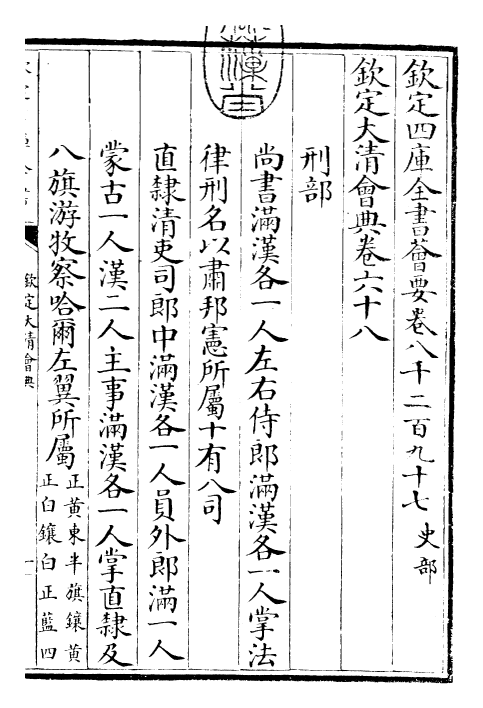 欽定四庫全書薈要卷八千二百九十七 史部
欽定大清會典卷六十八
刑部
尚書滿漢各一人左右侍郎滿漢各一人掌法
律刑名以肅邦憲所屬十有八司
直隸清吏司郎中滿漢各一人員外郎滿一人
蒙古一人漢二人主事滿漢各一人掌直隸及
八旗游牧察哈爾左翼所屬
正黃東半旗鑲黃
正白鑲白正藍四
欽定大清會典
一